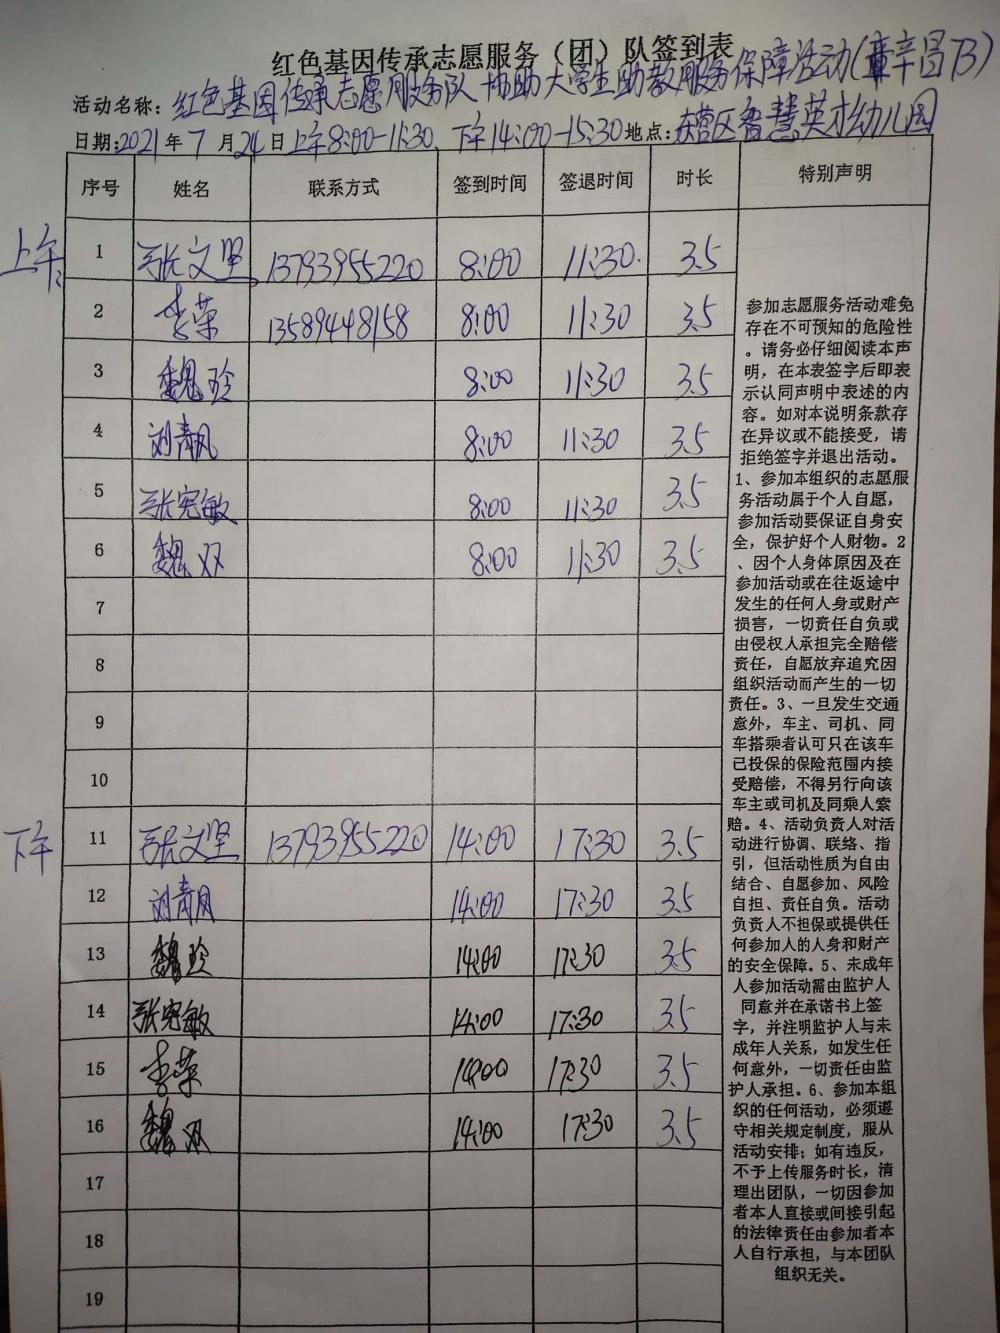 红色基因传承志愿服务（团）队签到表
活动名称：红色基因传承志愿服务队协助大学生助教服务保障活动(辛昌B)
日期：2021年7月24日上午8:00-11:30、下午14:00-15:30 地点：东营区智慧英才幼儿园
序号 姓名 联系方式 签到时间 签退时间 时长 特别声明
上午：
1 张文坚 13793955220 8:00 11:30. 3.5
2 李荣 13589448158 8:00 11:30 3.5
3 魏玲 8:00 11:30 3.5
4 刘青风 8:00 11:30 3.5
5 张宪敏 8:00 11:30 3.5
6 魏双 8:00 11:30 3.5
7
8
9
10
下午
11 张文坚 13793955220 14:00 17:30 3.5
12 刘青风 14:00 17:30 3.5
13 魏玲 14:00 17:30 3.5
14 张宪敏 14:00 17:30 3.5
15 李荣 14:00 17:30 3.5
16 魏双 14:00 17:30 3.5
17
18
19
参加志愿服务活动难免
存在不可预知的危险性
。请务必仔细阅读本声
明，在本表签字后即表
示认同声明中表述的内
容。如对本说明条款存
在异议或不能接受，请
拒绝签字并退出活动。
1、参加本组织的志愿服
务活动属于个人自愿，
参加活动要保证自身安
全，保护好个人财物。2
、因个人身体原因及在
参加活动或在往返途中
发生的任何人身或财产
损害，一切责任自负或
由侵权人承担完全赔偿
责任，自愿放弃追究因
组织活动而产生的一切
责任。3、一旦发生交通
意外，车主、司机、同
车搭乘者认可只在该车
已投保的保险范围内接
受赔偿，不得另行向该
车主或司机及同乘人索
赔。4、活动负责人对活
动进行协调、联络、指
引，但活动性质为自由
结合、自愿参加、风险
自担、责任自负。活动
负责人不担保或提供任
何参加人的人身和财产
的安全保障。5、未成年
人参加活动需由监护人
同意并在承诺书上签
字，并注明监护人与未
成年人关系，如发生任
何意外，一切责任由监
护人承担。6、参加本组
织的任何活动，必须遵
守相关规定制度，服从
活动安排；如有违反，
不予上传服务时长，清
理出团队，一切因参加
者本人直接或间接引起
的法律责任由参加者本
人自行承担，与本团队
组织无关。